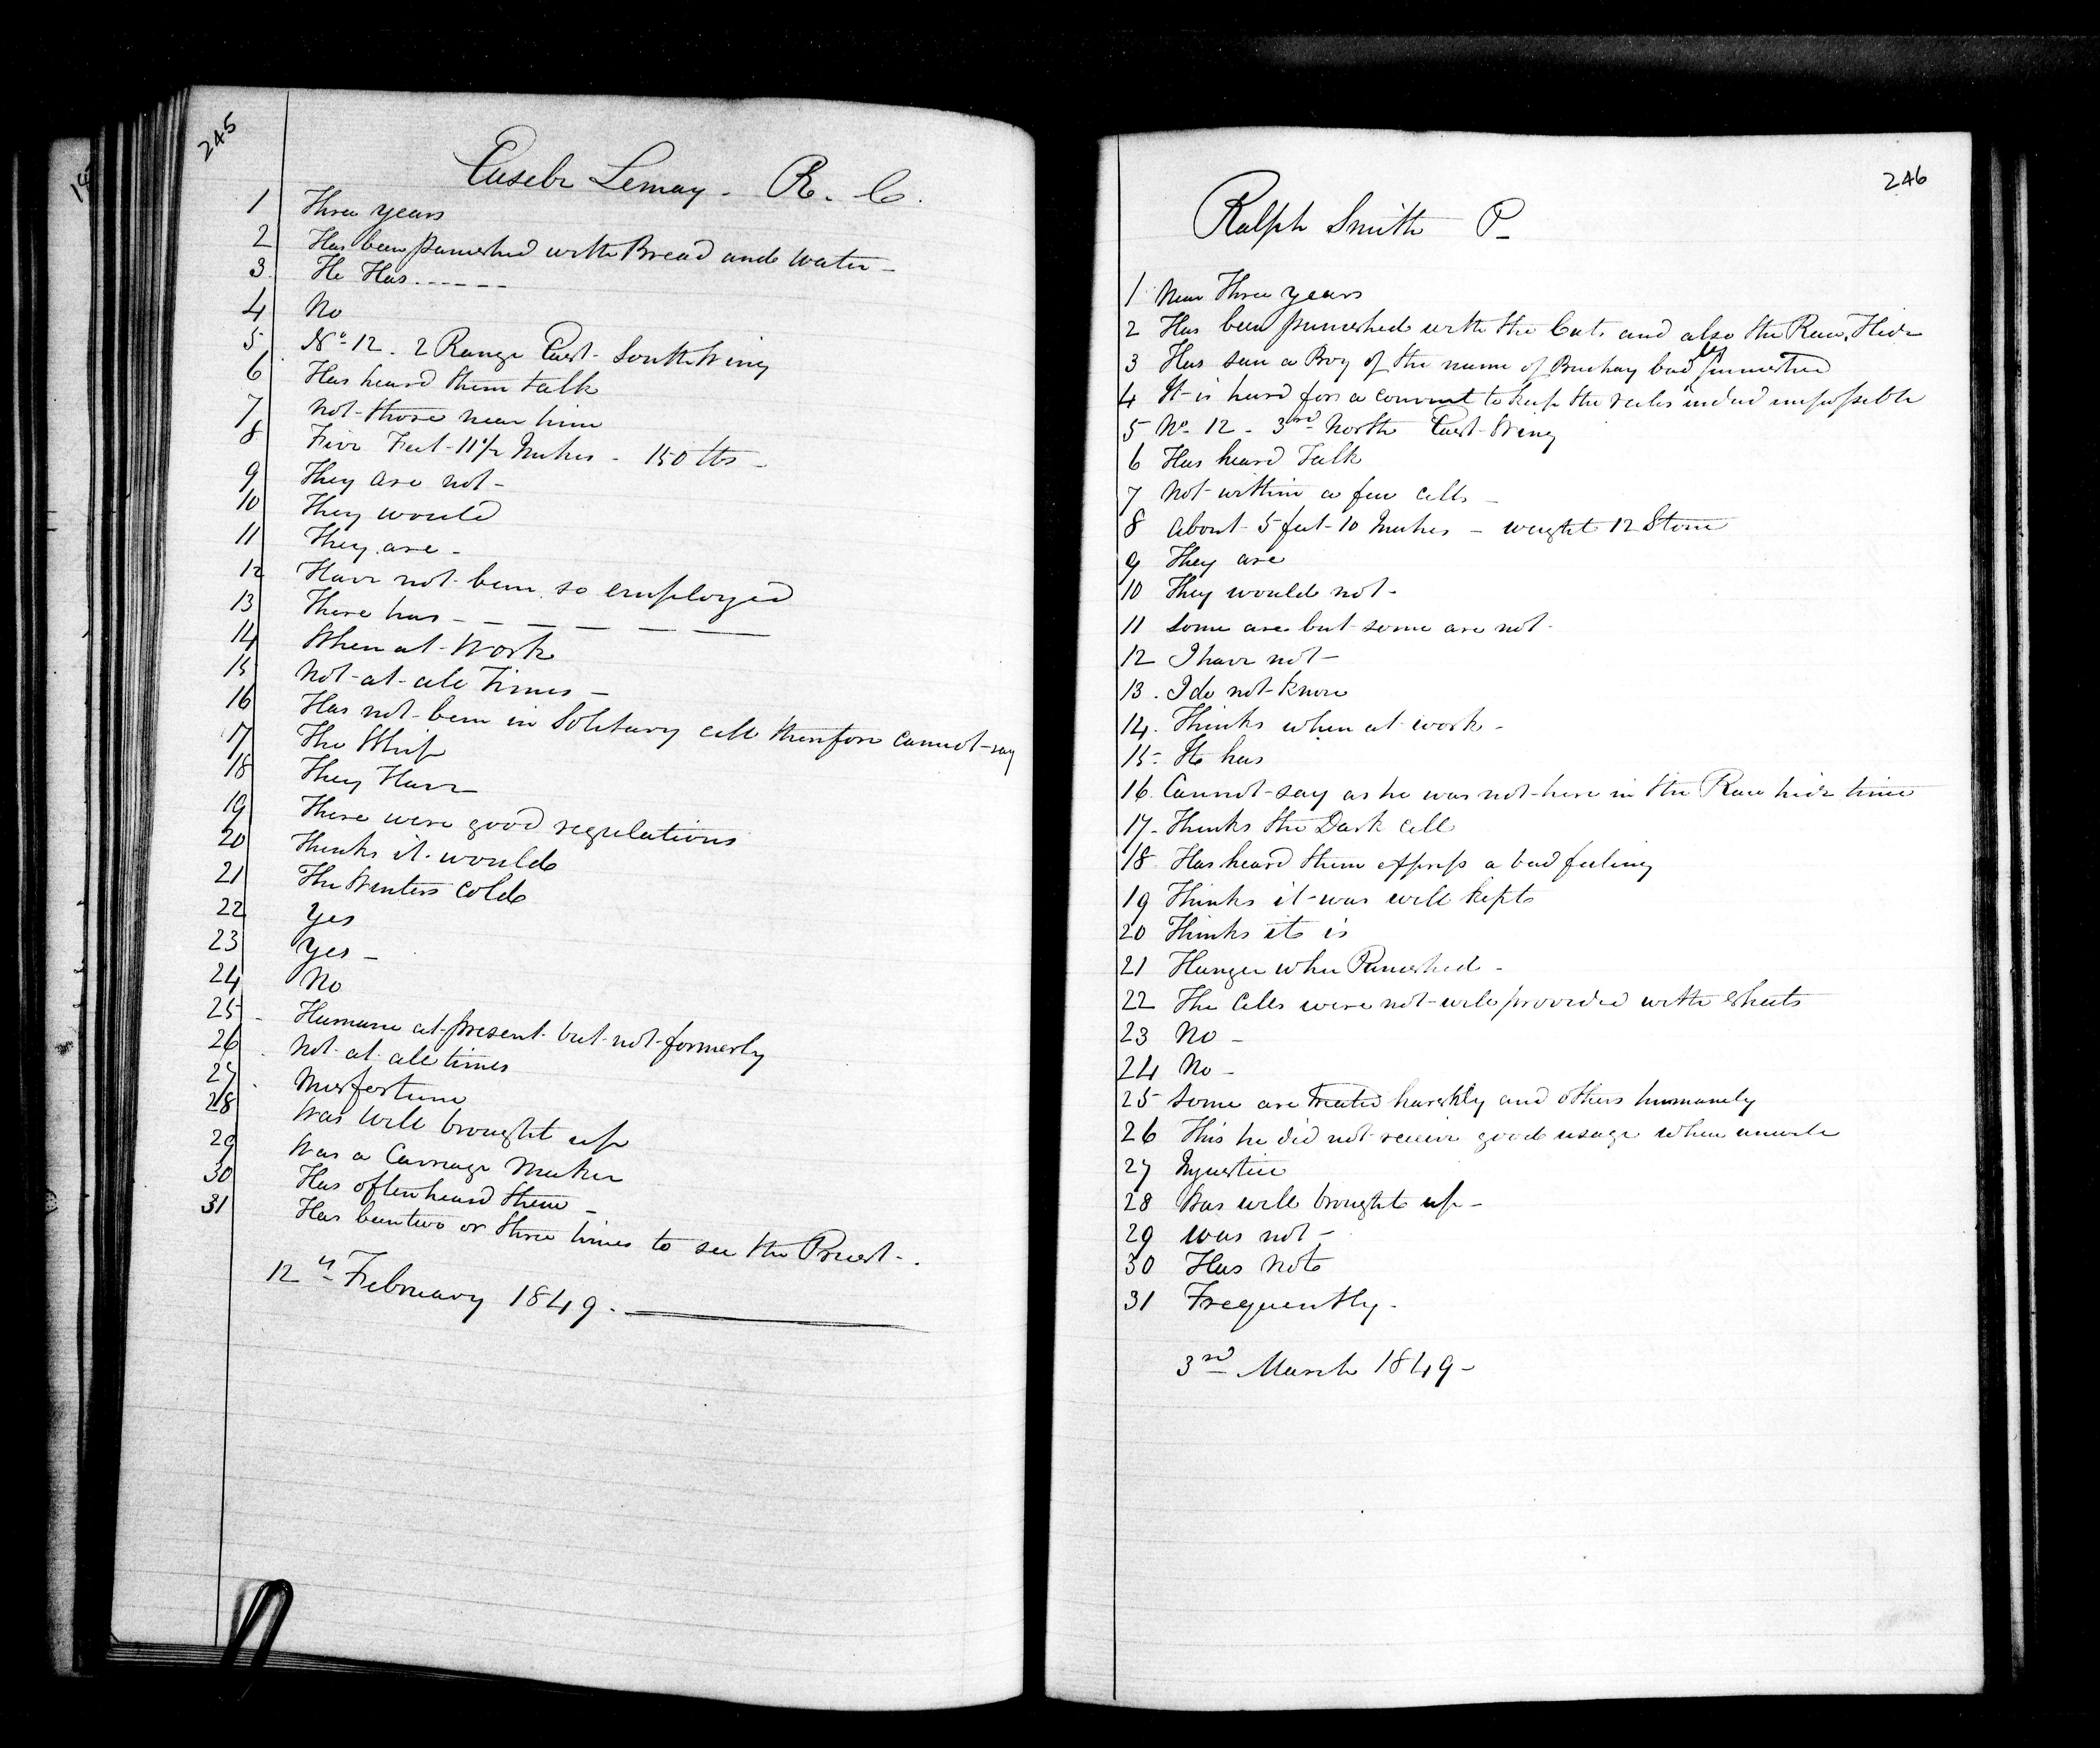 245
Eusebe Lemay - R. C.
1 Three years
2 Has been punished with Bread and Water -
3 He Has - - - - - -
4 No
5 No 12 . 2 Range East - South Wing
6 Has heard them talk
7 Not those near him
8 Five Feet 11 1/2 Inches - 150 lbs -
9 They are not -
10 They would
11 They are -
12 Have not been so employed
13 There has - - - - - -
14 When at Work
15 Not at all Times -
16 Has not been in Solitary cell therefore cannot say
17 The Whip
18 They Have
19 There were good regulations
20 Thinks it would
21 The Winters Cold
22 Yes
23 Yes -
24 No
25 Humane at present but not formerly
26 Not at all times
27 Misfortune
28 Was well brought up
29 Was a Carriage Maker
30 Has often heard them -
31 Has been two or three times to see the Priest - .
12th February 1849 .
246
Ralph Smith P -
1 Near Three years
2 Has been punished with the Cats and also the Raw Hide
3 Has seen a Boy of the name of badly punished
4 It is hard for a convict to keep the rules indeed impossible
5 No 12 - 3rd North East Wing
6 Has heard Talk
7 Not within a few cells -
8 About 5 feet 10 Inches - weight 12 Stone
9 They are
10 They would not -
11 Some are but some are not -
12 I have not -
13 . I do not know
14 . Thinks when at work -
15 - He has
16 . Cannot say as he was not here in the Raw hide time
17 - Thinks the Dark Cell
18 Has heard them express a bad feeling
19 Thinks it was well kept
20 Thinks it is
21 Hunger when Punished -
22 The Cells were not well provided with sheets
23 No -
24 No -
25 Some are treated harshly and others humanely
26 This he did not receive good usage when unwell
27 Injustice
28 Was well brought up -
29 was not -
30 Has Not
31 Frequently -
3rd March 1849 -